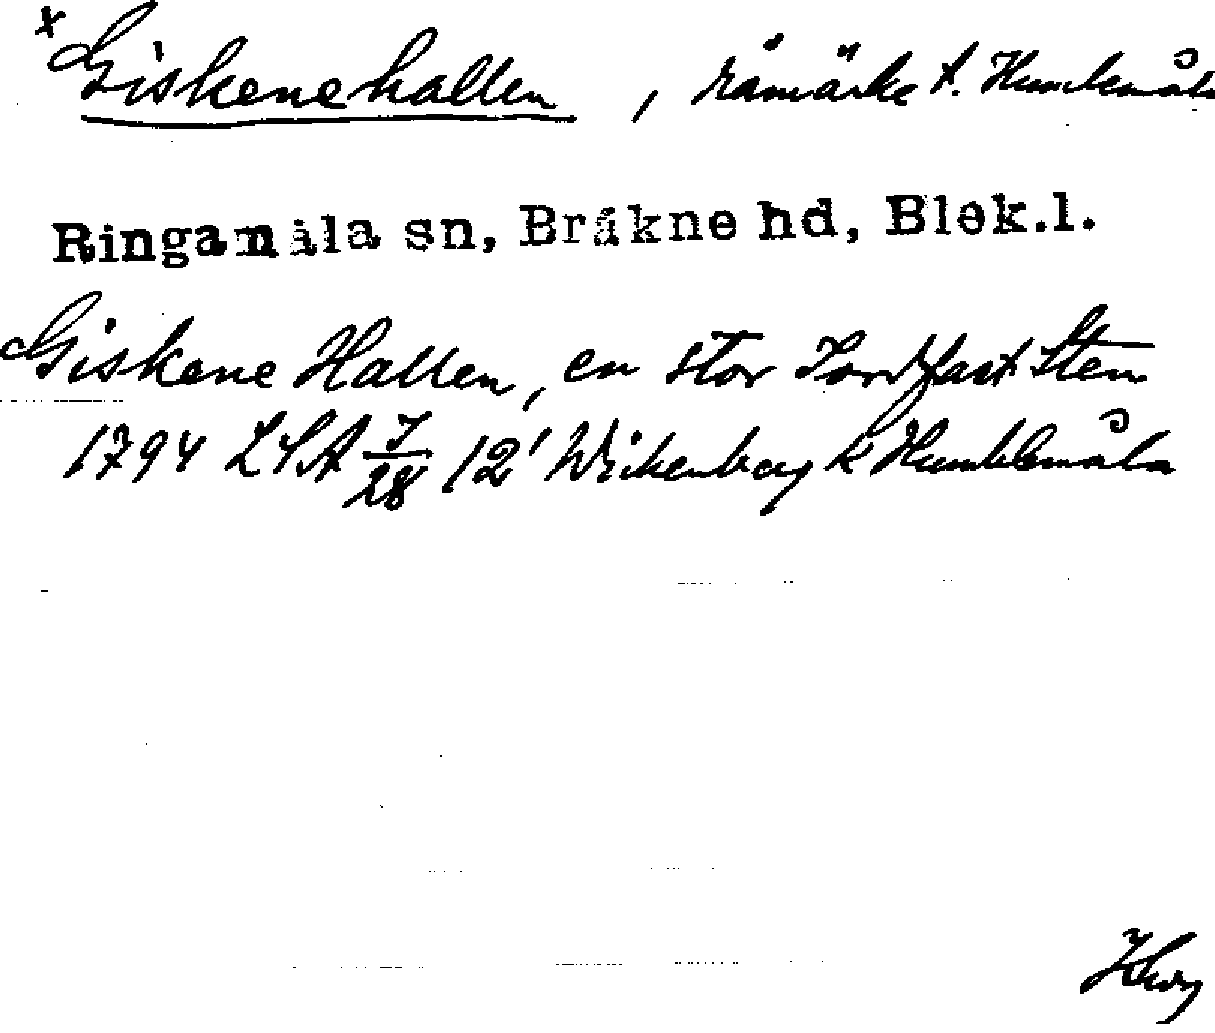 x Giskenehallen, råmärke t. Humlemåla
Ringamåla sn, Bräkne hd, Blek.l.
Giskene Hallen, en stor Jordfast Sten
1794 LSA J/28 12' Wickenberg k Humblemåla